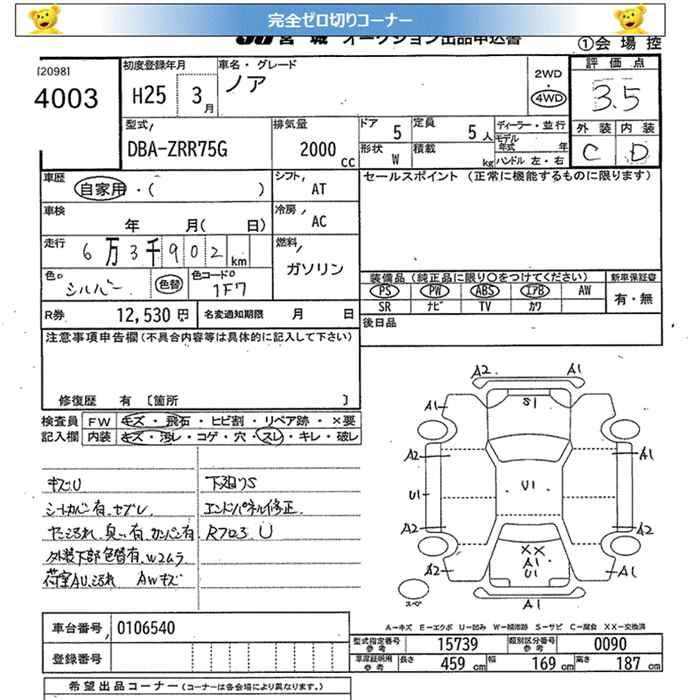 完全ゼロ切りコーナー
JU 宮城 オークション出品申込書 ①会場控
[2098]
4003
初度登録年月 H25 3月
車名・グレード ノア
2WD ・ 4WD
評価点 3.5
型式 DBA-ZRR75G
排気量 2000cc
ドア 5 定員 5人
形状 W 積載 kg
ディーラー・並行
モデル年式 年
ハンドル 左・右
外装 内装
C D
車歴 自家用・( )
シフト AT
セールスポイント (正常に機能するものに限ります)
車検 年 月( 日)
冷房 AC
走行 6万3千902km
燃料 ガソリン
色 シルバー 色替 色コード 1F7
装備品 (純正品に限り〇をつけてください) 新車保証書
PS PW ABS エアB AW 有・無
SR ナビ TV カワ
R券 12,530円 名変通知期限 月 日
後日品
注意事項申告欄(不具合内容等は具体的に記入して下さい)
修復歴 有 [箇所 ]
検査員 FW キズ・飛石・ヒビ割・リペア跡・×要
記入欄 内装 キズ・汚レ・コゲ・穴・スレ・キレ・破レ
キズU 下廻りS
シートカバー有、
エンドパネル修正
R703 U
外装下部色替有、W2ムラ
荷室AU、 AWキズ
A2 A1
A1 S1 A1
A2 A1
U1 U1 U1
A2 A2
XX
A1
U1
A2 A1
A1
スペア
A-キズ E-エクボ U-凹み W-補修跡 S-サビ C-腐食 XX-交換済
車台番号 0106540
型式指定番号 参考 15739 類別区分番号 参考 0090
登録番号
車庫証明用 参考 長さ 459cm 幅 169cm 高さ 187cm
希望出品コーナー (コーナーは各会場により異なります。)